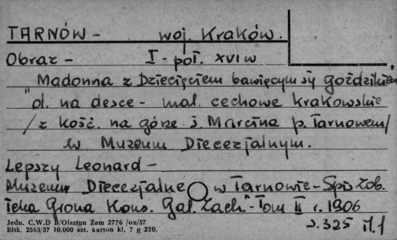 TARNÓW - woj. Kraków.
Obraz - I - poł. XVI w
"Madonna z Dziecięciem bawiącym się goździkiem
" ol. na desce - mal. cechowe krakowskie
/z kośc. na górze ś. Marcina p. Tarnowem/
w Muzeum Diecezjalnym.
Lepszy Leonard -
Muzeum Diecezjalne w Tarnowie - Spis Zob.
Grona Kons. Gal. Zach." - Tom II r. 1906
s. 325
Jedn. C.W.D Olsztyn Zam 2776
Blk. 2563/57 10.000 szt. karton kl. 7 g 220.